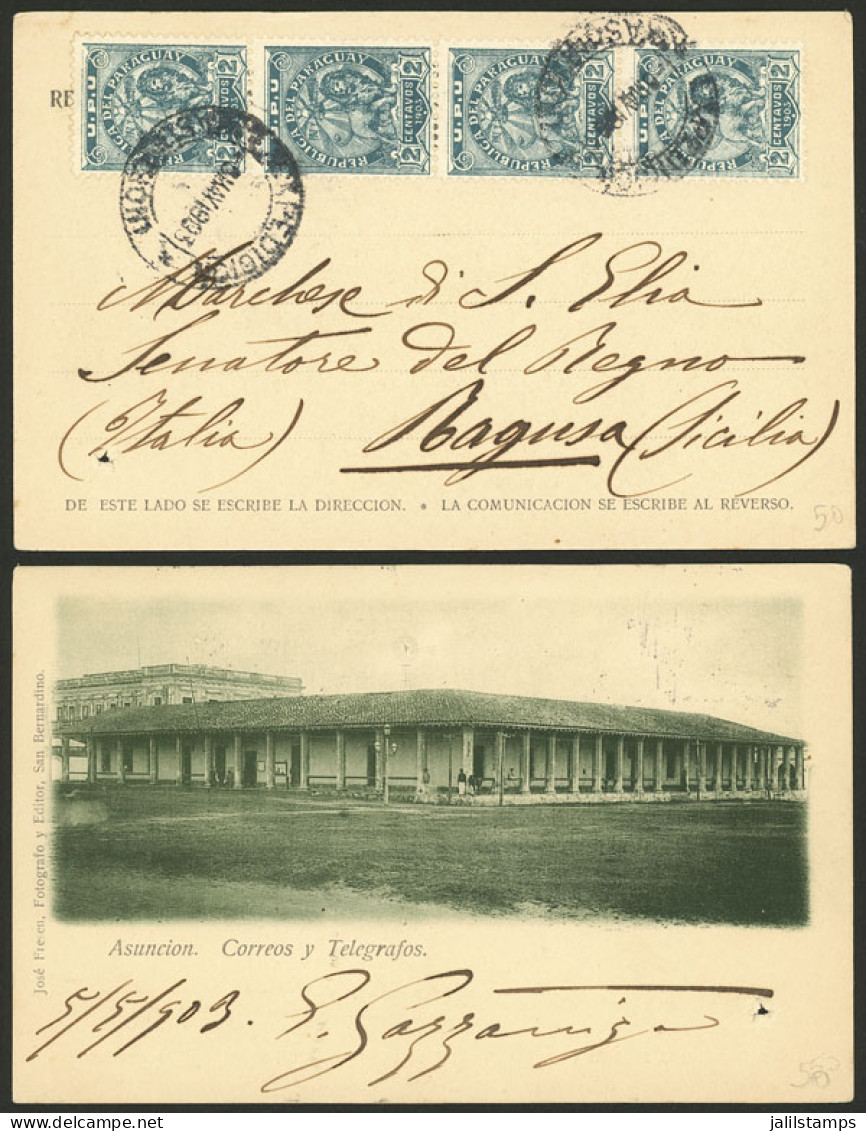 RE
U.P.U
REPUBLICA DEL PARAGUAY
2 CENTAVOS 2
1903
U.P.U
REPUBLICA DEL PARAGUAY
2 CENTAVOS 2
1903
U.P.U
REPUBLICA DEL PARAGUAY
2 CENTAVOS 2
1903
U.P.U
REPUBLICA DEL PARAGUAY
2 CENTAVOS 2
1903
Marchese di S. Elia
Senatore del Regno
(Italia) Ragusa (Sicilia)
DE ESTE LADO SE ESCRIBE LA DIRECCION. • LA COMUNICACION SE ESCRIBE AL REVERSO.
50
José Fresen, Fotografo y Editor, San Bernardino.
Asuncion. Correos y Telegrafos.
5/5/903. P. Gazzaniga
jalilstamps